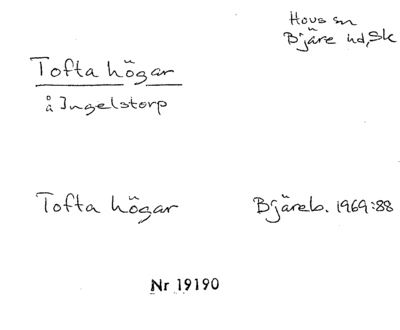 Hovs sn
Bjäre hd, Sk
Tofta högar
å Ingelstorp
Tofta högar
Bjäreb. 1969:88
Nr 19190